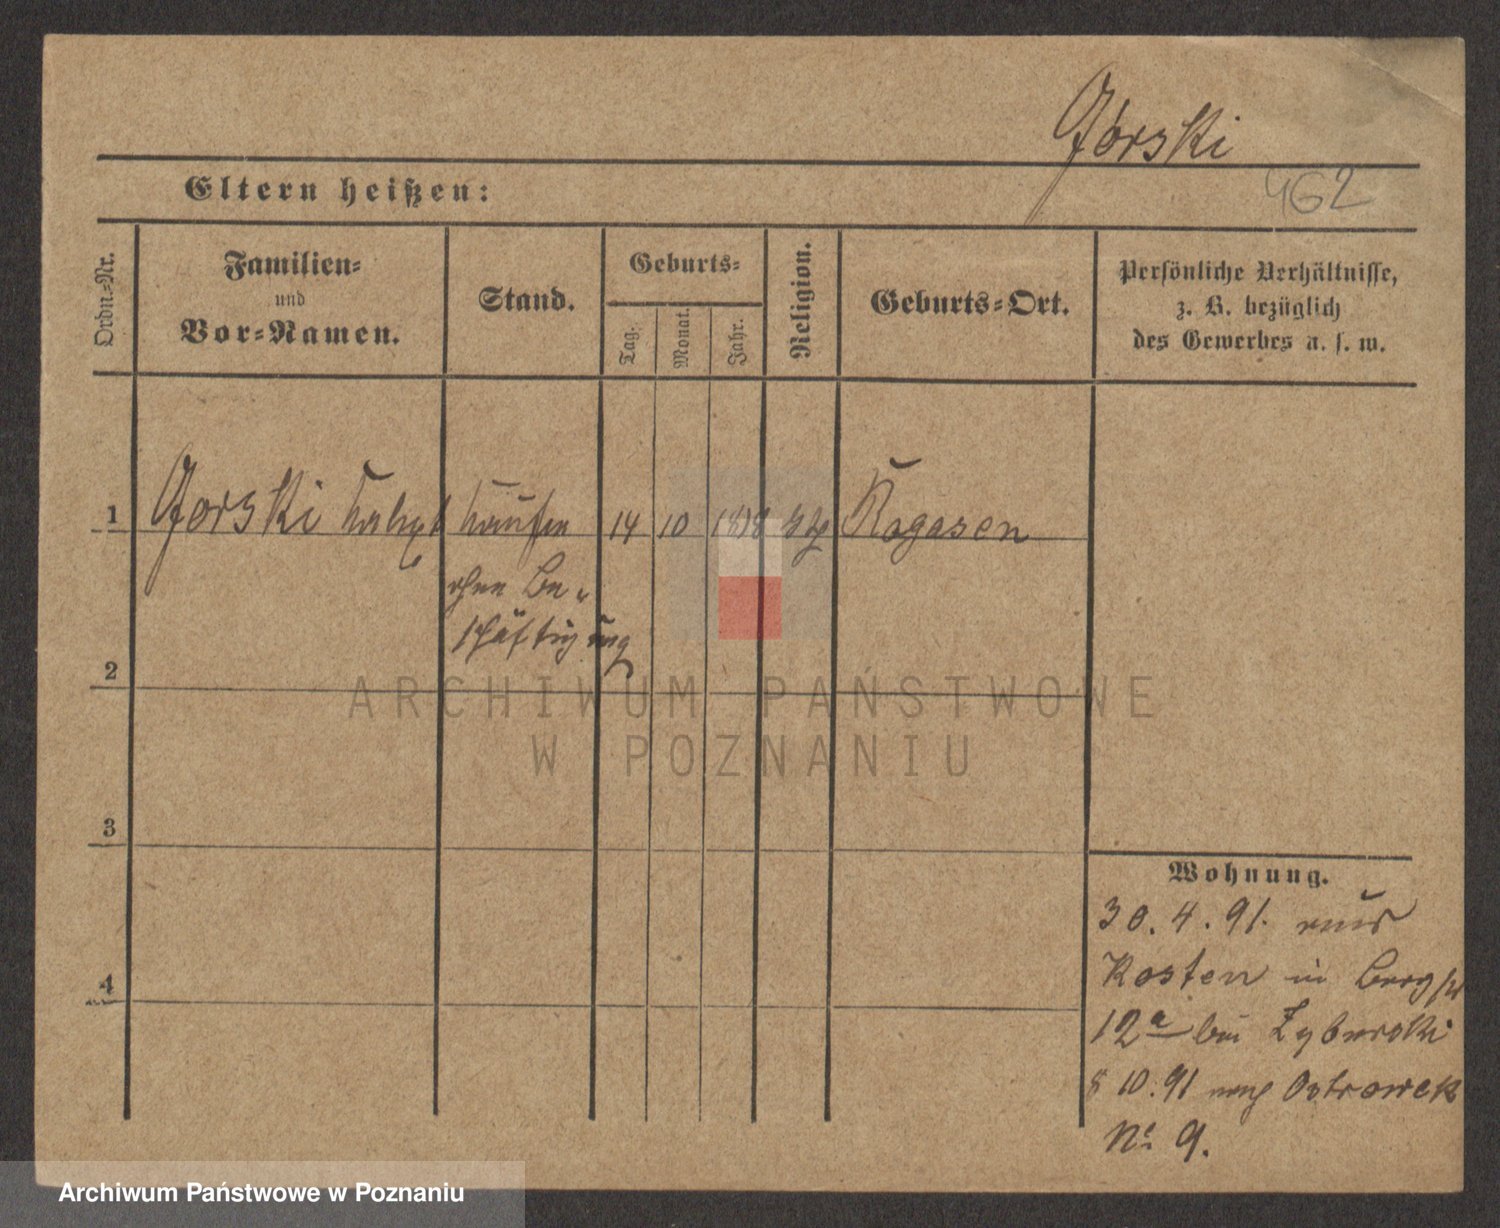 Górski
462
Eltern heißen:
Ordn.-Nr.
Familien-
und
Vor-Namen.
Stand.
Geburts-
Tag.
Monat.
Jahr.
Religion.
Geburts-Ort.
Persönliche Verhältnisse,
z. B. bezüglich
des Gewerbes u. s. w.
1 Gorski 14 10 Rogasen
ohne Be-
schäftigung
2
3
4
Wohnung.
30.4.91. aus
Kosten in Bergstr
12a bei
8 10.91 nach Ostrowek
No 9.
ARCHIWUM PAŃSTWOWE
W POZNANIU
Archiwum Państwowe w Poznaniu